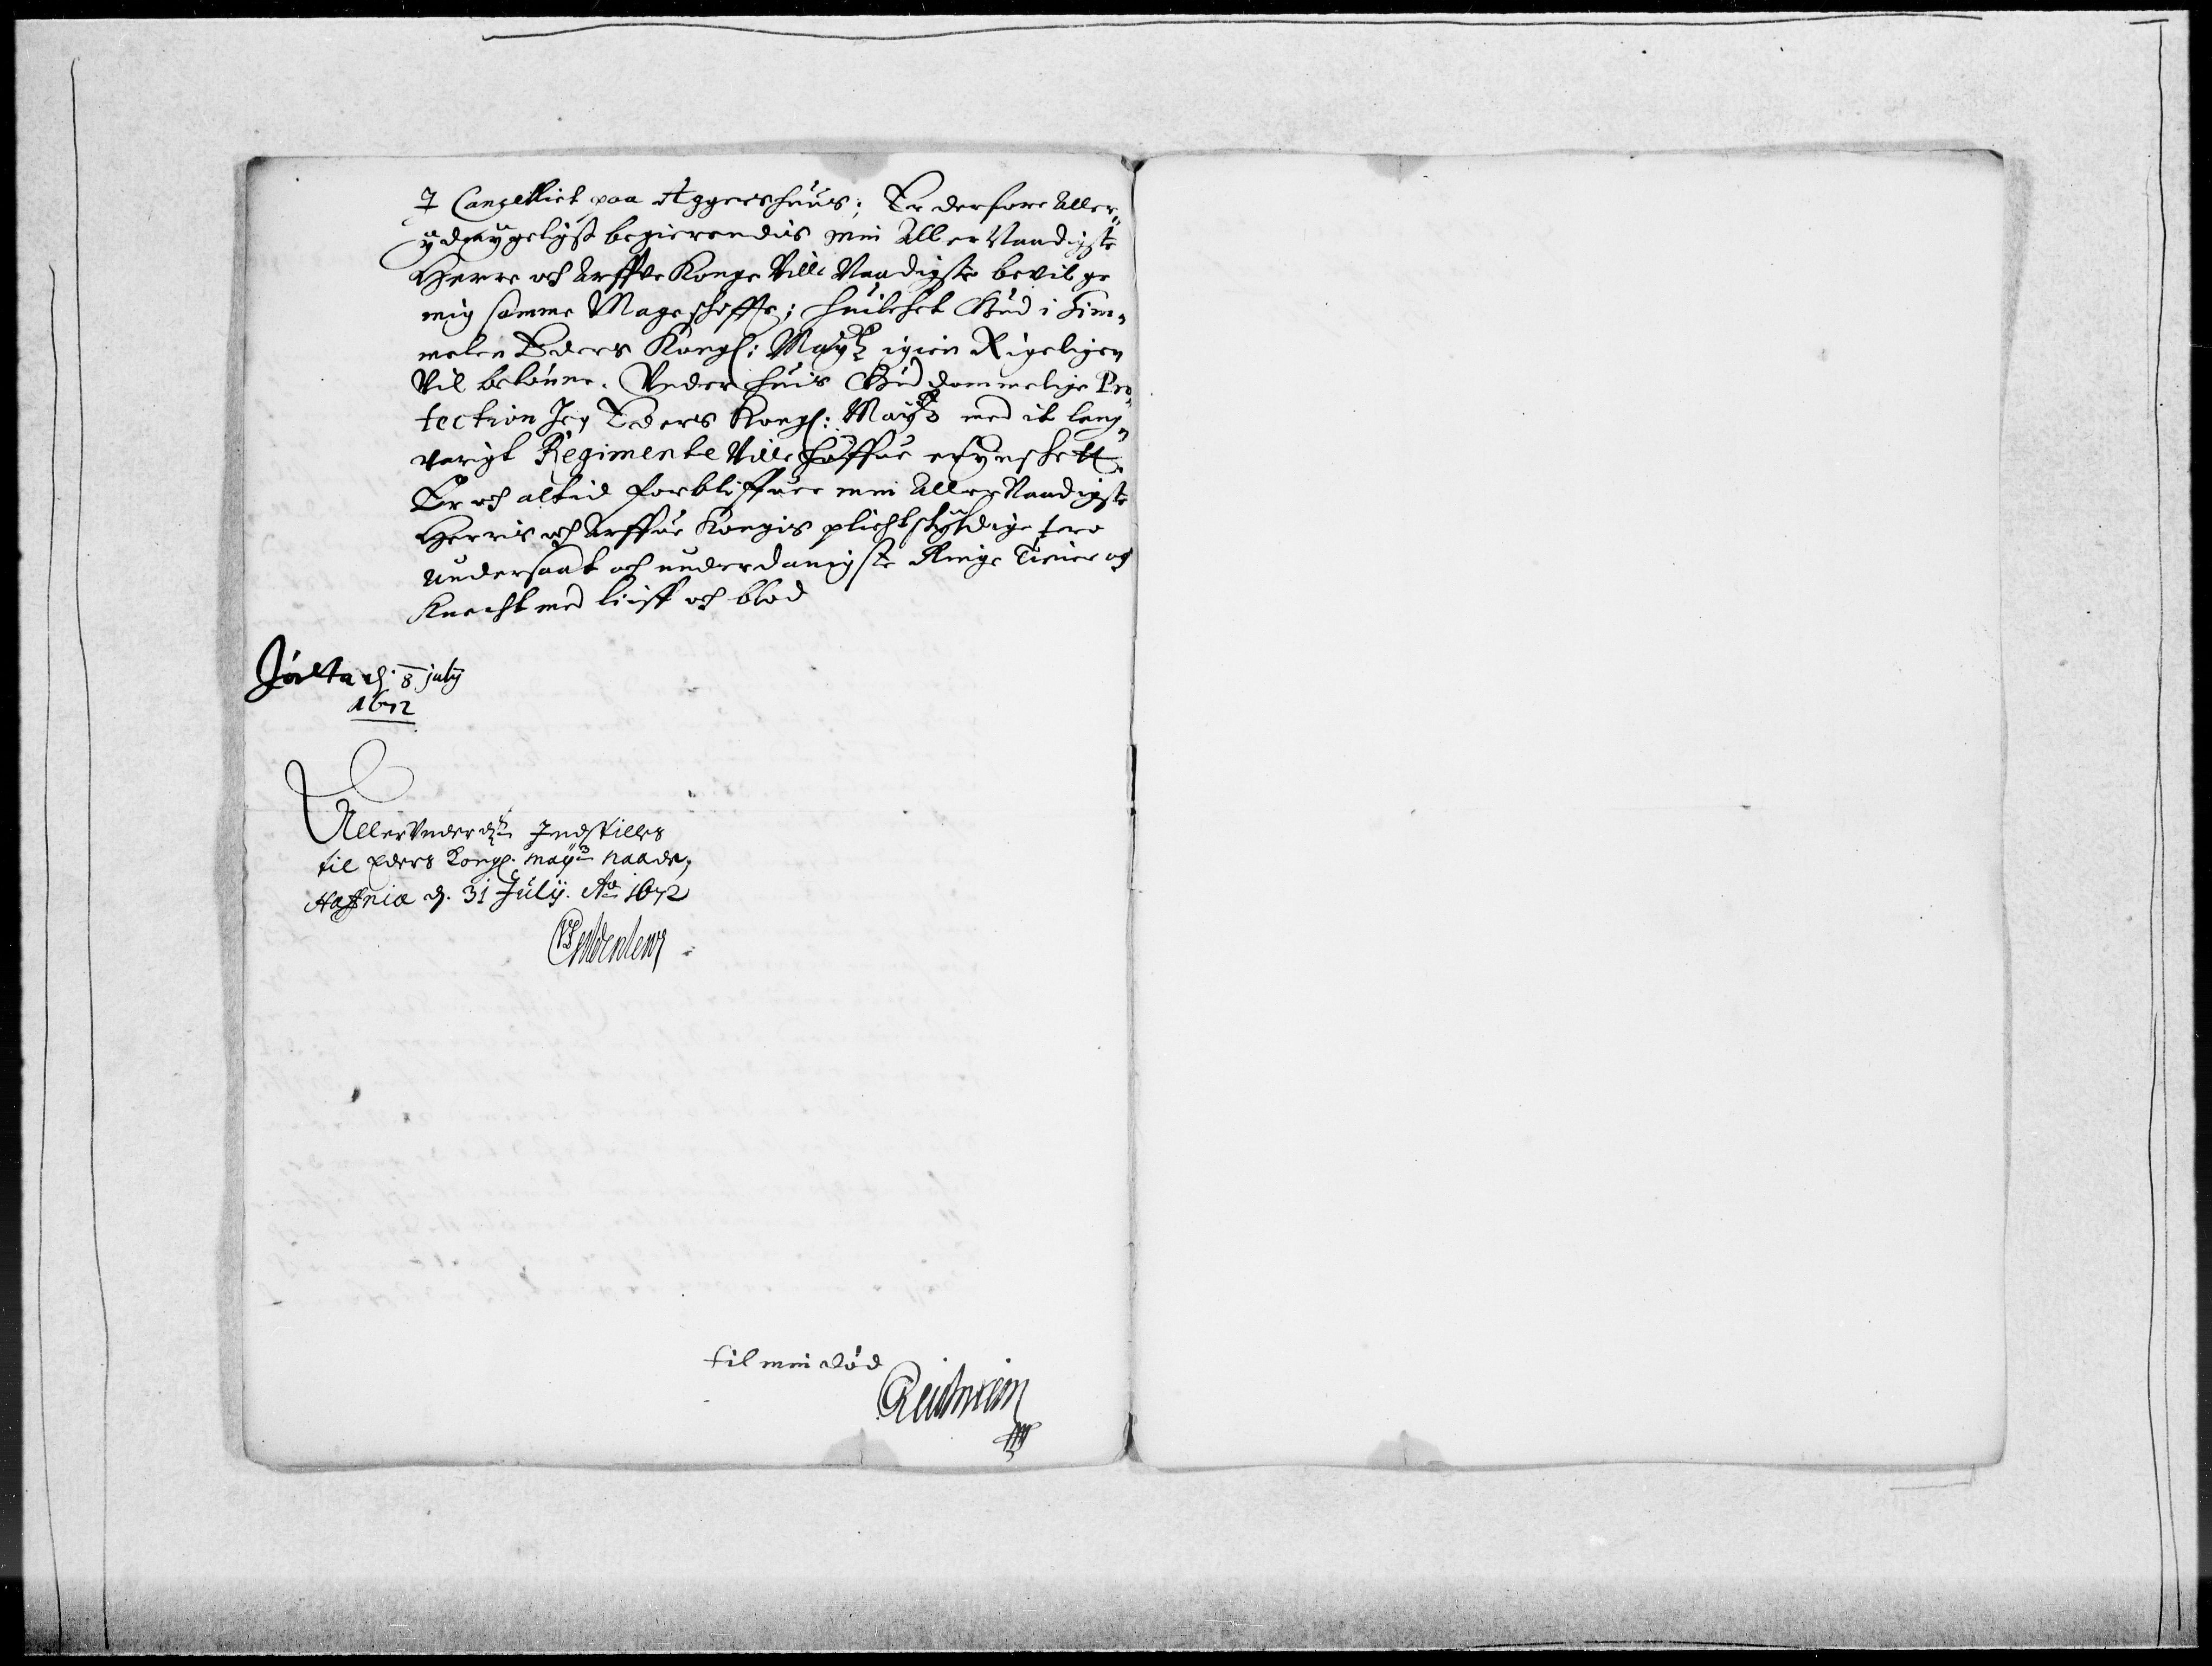 I Cancelliet paa Aggershuus; Er derfore Aller-
ydmygeligst begierendis min Aller Naadigste
Herre och Arffve Konge Ville Naadigste bevilge
mig samme Mageschiffte; huilchet Gud i him-
melen Eders Kongl: Maytz igien Rigeligen
Vil belønne. Under huis Guddommelige Pro-
tection Jeg Eders Kongl: Maytz med it lang-
varigt Regimente Ville haffue ... 
Er och altid forbliffuer min Aller Naadigste
Herris och Arffue Kongis plichtschyldige tro
undersaat och underdanigste Ringe Tiener og
Knecht med liiff och blod
d. 8 july
1672
Allerunderd. Indstilles
til Eders Kongl. Mayts naade,
Hafniæ d. 31 Julij. Ao 1672
UFGyldenlew
til min død